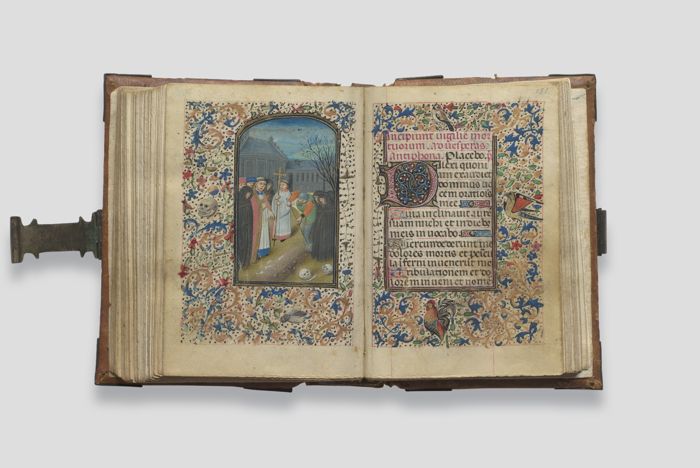 Incipiunt vigilie mor
tuorum. Ad vesperas
antiphona. Placebo. p
Dilexi quoni
am exaudiet
dominus vo
cem orationis
mee
Quia inclinauit aure
suam michi et in diebus
meis inuocabo
Circumdederunt me
dolores mortis et pericu
la inferni inuenerunt me
Tribulationem et do
lorem inueni et nome